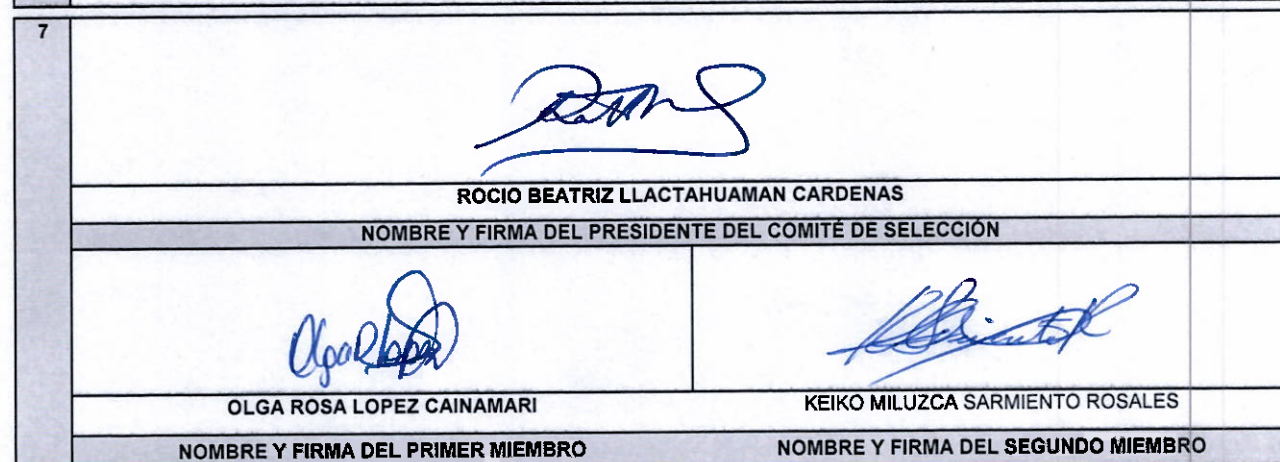 7
ROCIO BEATRIZ LLACTAHUAMAN CARDENAS
NOMBRE Y FIRMA DEL PRESIDENTE DEL COMITÉ DE SELECCIÓN
OLGA ROSA LOPEZ CAINAMARI
KEIKO MILUZCA SARMIENTO ROSALES
NOMBRE Y FIRMA DEL PRIMER MIEMBRO
NOMBRE Y FIRMA DEL SEGUNDO MIEMBRO